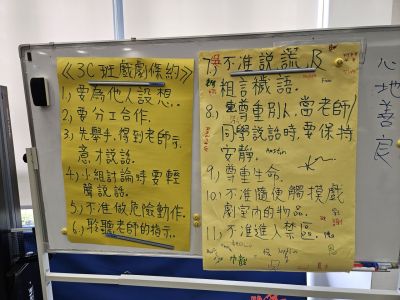 《3C班戲劇條約》
1.) 要為他人設想.
2.) 要分工合作.
3.) 先舉手,得到老師示
意才說話.
4.) 小組討論時要輕
聲說話.
5.) 不准做危險動作.
6.) 聆聽老師的指示.
7.) 不准說謊及
粗言穢語.
8.) 尊重別人.當老師/
同學說話時要保持
安靜.
9.) 尊重生命.
10.) 不准隨便觸摸戲
劇室內的物品.
11.) 不准進入禁區.
心地善良